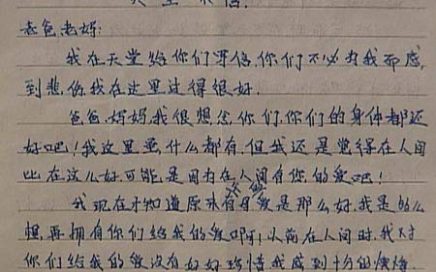 老爸老妈:
我在天堂给你们写信,你们不必为我而感
到悲伤我在这里过得很好.
爸爸,妈妈,我很想念你们,你们的身体都还
好吧!我这里虽什么都有,但我还是觉得在人间
比在这儿好,可能是因为在人间有您的爱吧!
我现在才知道原来有 爱是那么好,我是多么
想再拥有你们给我的爱啊!以前在人间时,我对
你们给我的爱没有好好珍惜我感到十分的